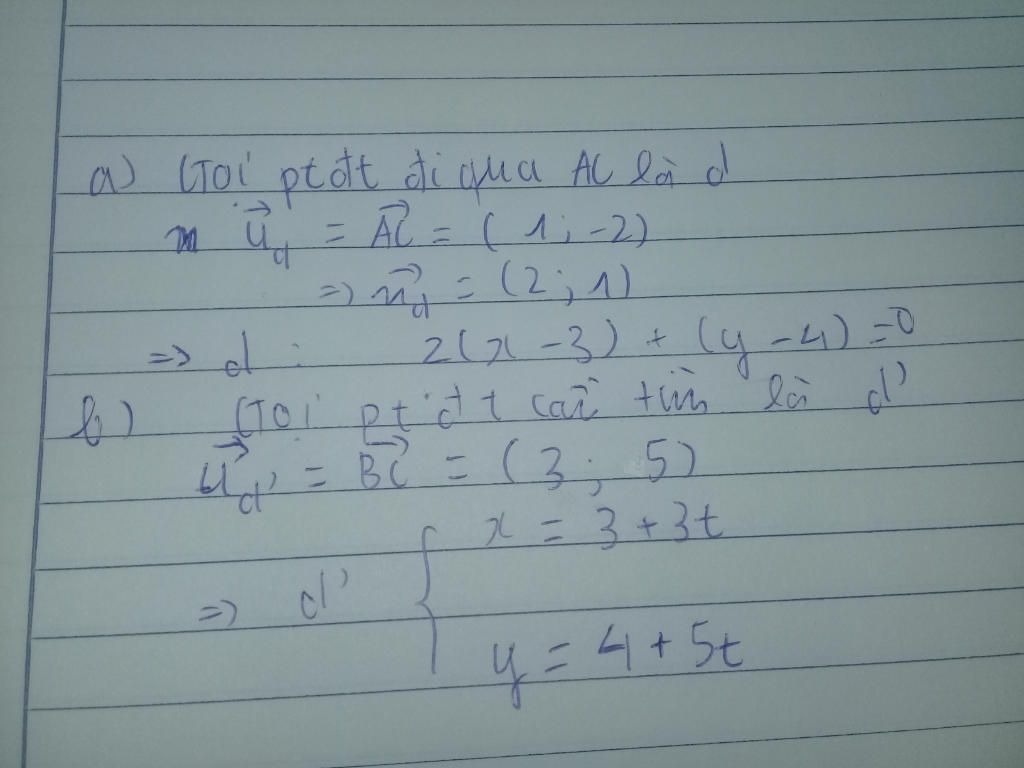 a) Gọi ptđt đi qua AC là d
u⃗d = AC⃗ = (1; -2)
=> n⃗d = (2; 1)
=> d: 2(x - 3) + (y - 4) = 0
b) Gọi ptđt cần tìm là d'
u⃗d' = BC⃗ = (3; 5)
x = 3 + 3t
=> d' {
y = 4 + 5t